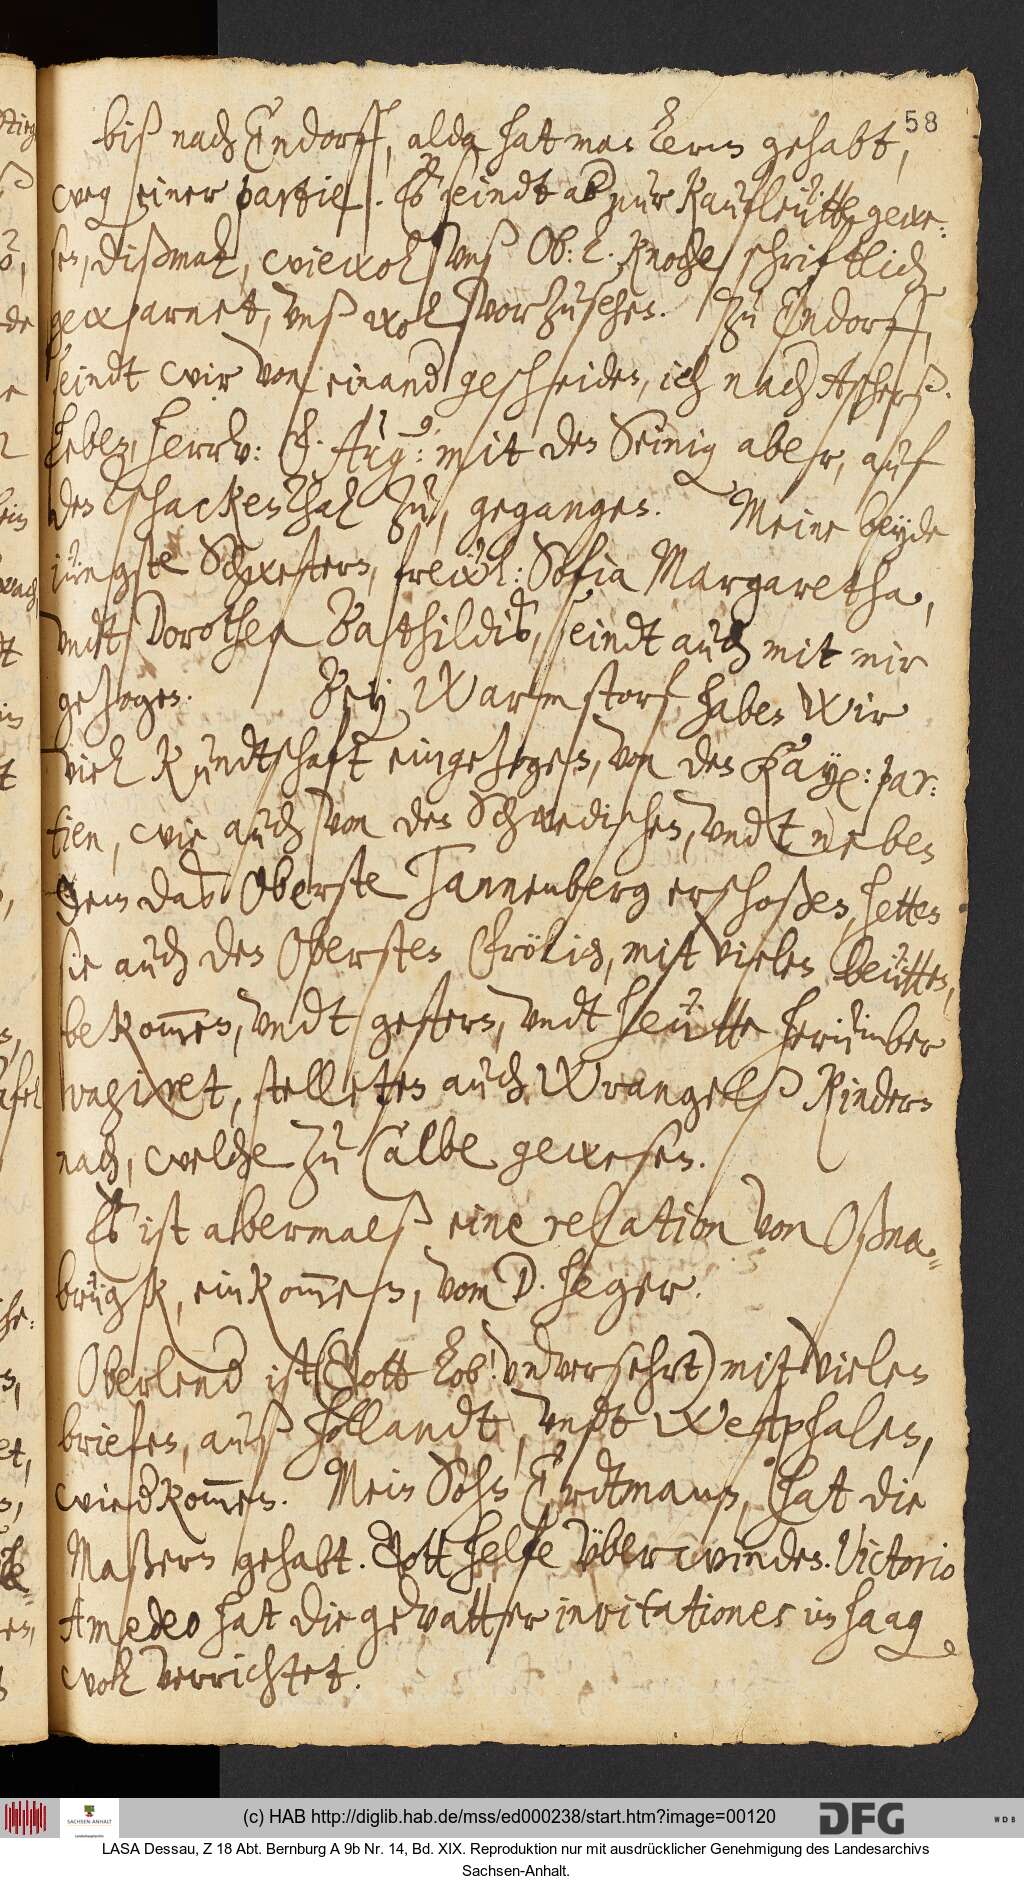 58
biß nach Endorff, alda hat man lerm gehabt,
weg einer partie. Es seindt ab nur Kaufleütte gewe-
sen, dißmal, wiewol unß Ob: L. Knoche schriftlich
gewarnet, unß wol vorzusehen. Zu Endorff,
seindt wir von einand gescheiden, ich nach Ascherß-
leben, herrv: F. Aug: mit den Seinig aber, auf
den Schackenthal zu, gegangen. Meine beyde
iüngste Schwestern, frewl: Sofia Margaretha,
undt Dorothea Bathildis, seindt auch mit mir
gezogen. Bey Warmstorf haben Wir
viel Kundtschaft eingezogen, von den Kayß: par-
tien, wie auch von den Schwedischen, undt neben
dem das Oberste Tannenberg erschoßen, hetten
sie auch den Obersten Frölich, mit vielen beütten,
bekommen, undt gestern, undt heütte herümber
vagiret, stelleten auch Wrangelß Kindern
nach, welche zu Calbe gewesen.
Es ist abermalß eine relation von Oßna-
brügk, einkommen, vom D. Heger.
Oberlend ist (Gott lob! undversehrt) mit vielen
briefen, auß Hollandt, undt Westphalen,
wied kommen. Mein Sohn Erdtmann, hat die
Maßern gehabt. Gott helfe überwinden. Victorio
Amedeo hat die gevatter invitationes im Haag
wol verrichtet.
(c) HAB http://diglib.hab.de/mss/ed000238/start.htm?image=00120
SACHSEN-ANHALT
DFG
WDB
LASA Dessau, Z 18 Abt. Bernburg A 9b Nr. 14, Bd. XIX. Reproduktion nur mit ausdrücklicher Genehmigung des Landesarchivs
Sachsen-Anhalt.